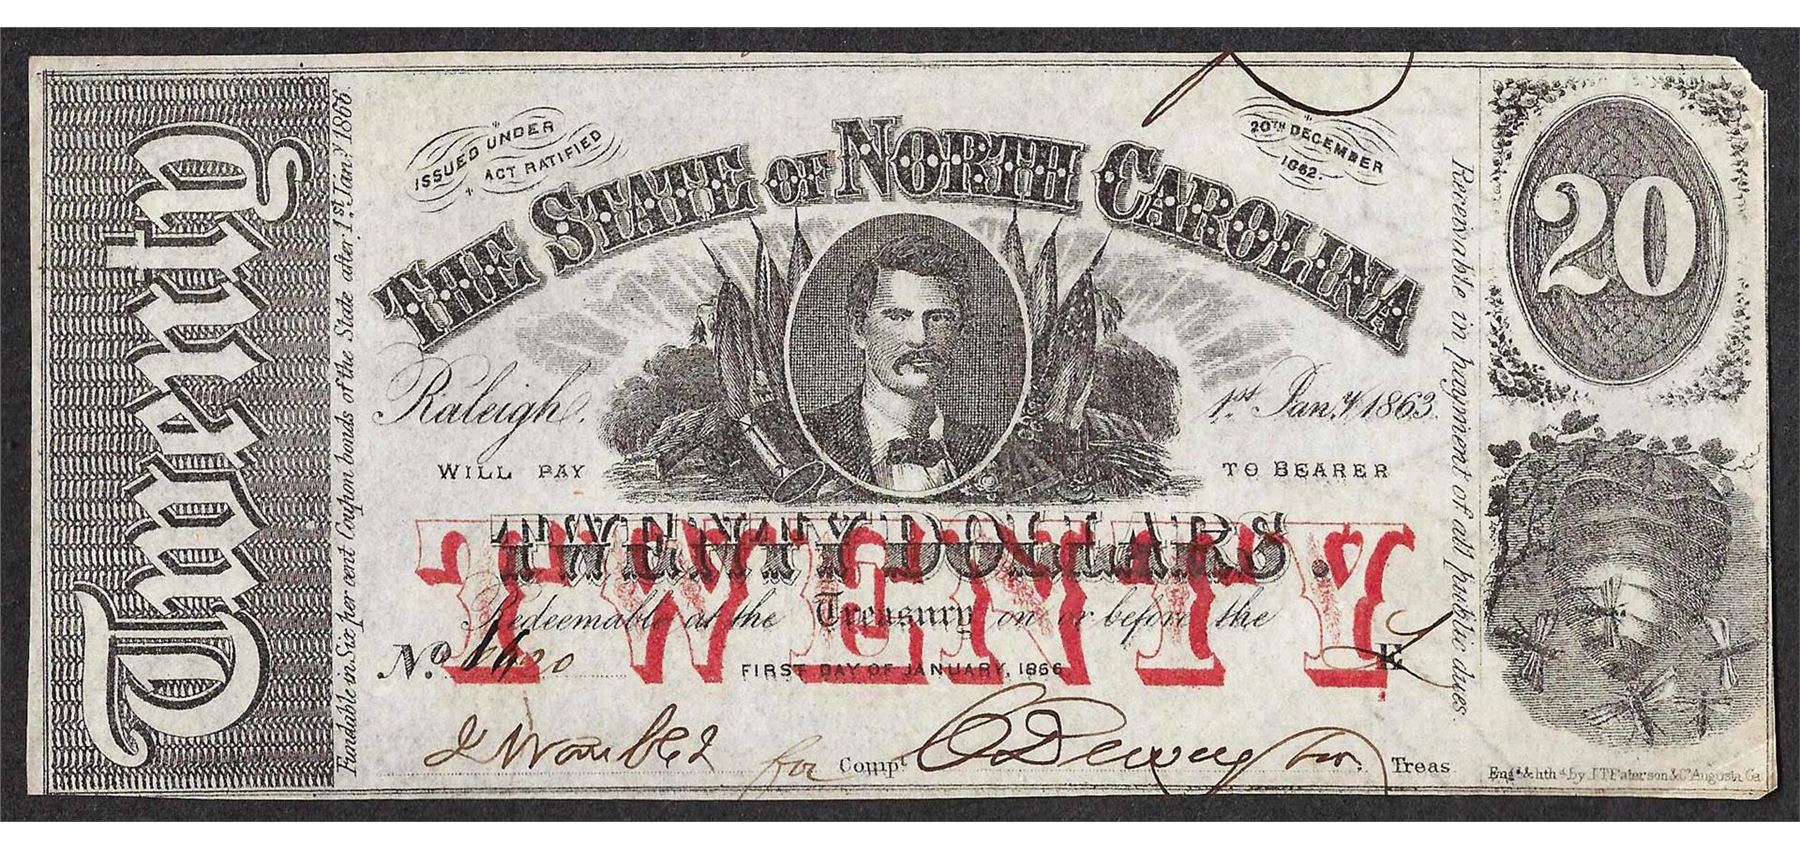 Twenty
Fundable in Six per cent Coupon bonds of the State after 1st Jany. 1866
ISSUED UNDER
ACT RATIFIED
20TH DECEMBER
1862.
THE STATE OF NORTH CAROLINA
Raleigh,
1st Jany. 1863.
WILL PAY
TO BEARER
TWENTY DOLLARS.
TWENTY
Redeemable at the Treasury on or before the
No.
FIRST DAY OF JANUARY, 1866
E
for Compt.
Treas
Receivable in payment of all public dues.
20
Engd. & lithd. by J T Paterson & Co Augusta Ga